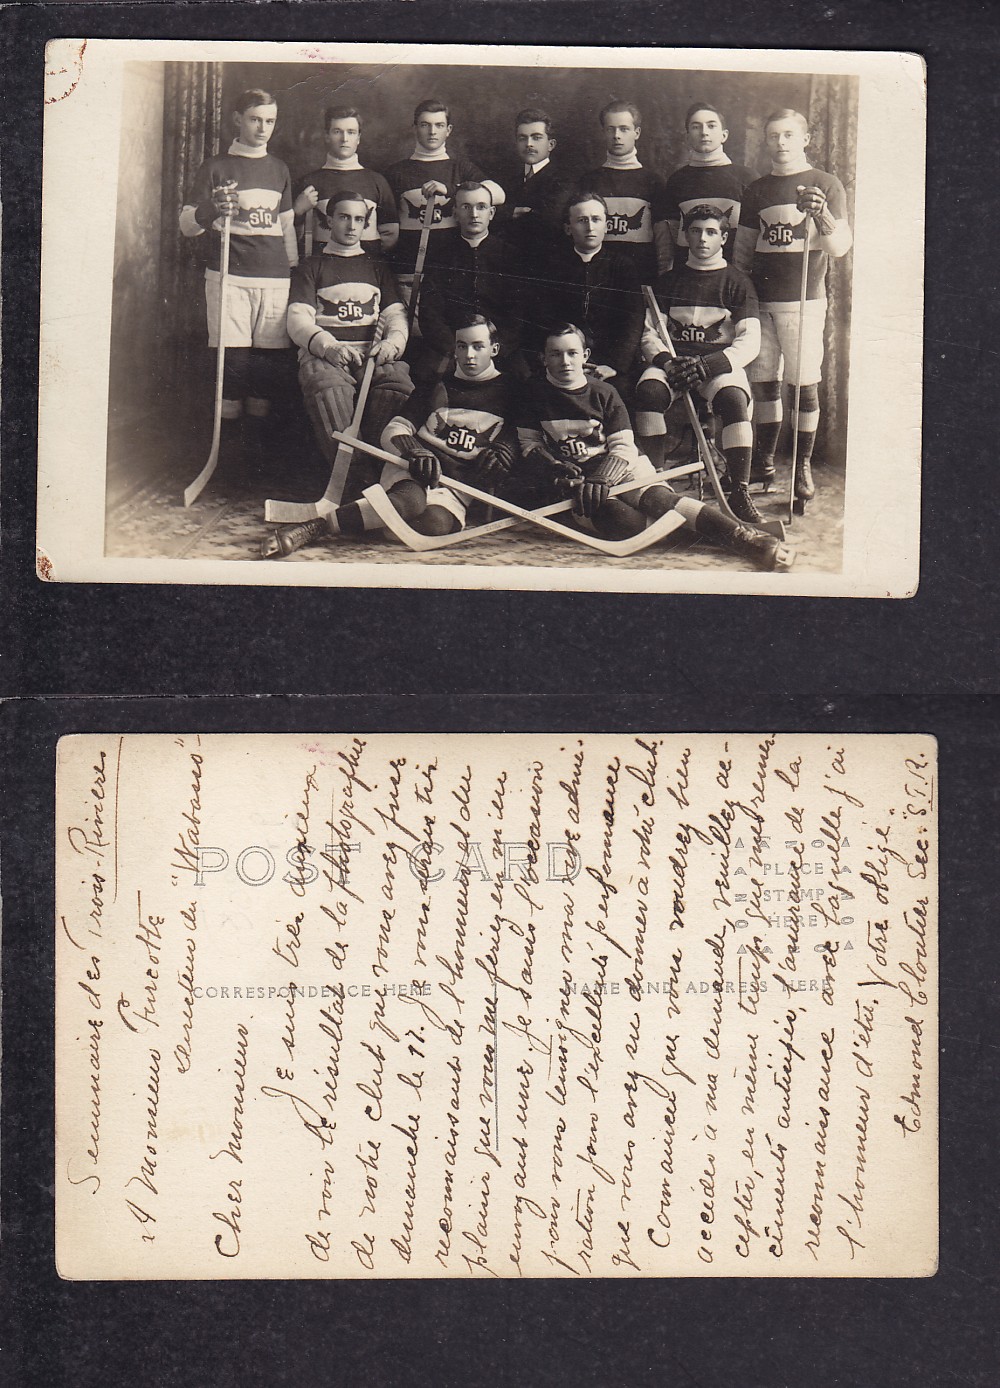 STR
STR
STR
STR
STR
STR
STR
STR
POST CARD
CORRESPONDENCE HERE
NAME AND ADDRESS HERE
PLACE
STAMP
HERE
Séminaire des Trois-Rivières
A Monsieur Turcotte
directeur du "Wabasso"
Cher Monsieur.
Je suis très anxieux
de voir le résultat de la photographie
de notre club que vous avez prise
dimanche le 17. Je vous serais très
reconnaissant de l'honneur et du
plaisir que vous me feriez en m'en
envoyant une. Je saisis l'occasion
pour vous témoigner ma vive admi-
ration pour l'excellente performance
que vous avez su donner à votre club.
Convaincu que vous voudrez bien
accéder à ma demande, veuillez ac-
cepter, en même temps que mes remer-
ciments anticipés, l'assurance de la
reconnaissance avec laquelle j'ai
l'honneur d'être, Votre obligé
Edmond Cloutier Sec. "S.T.R.